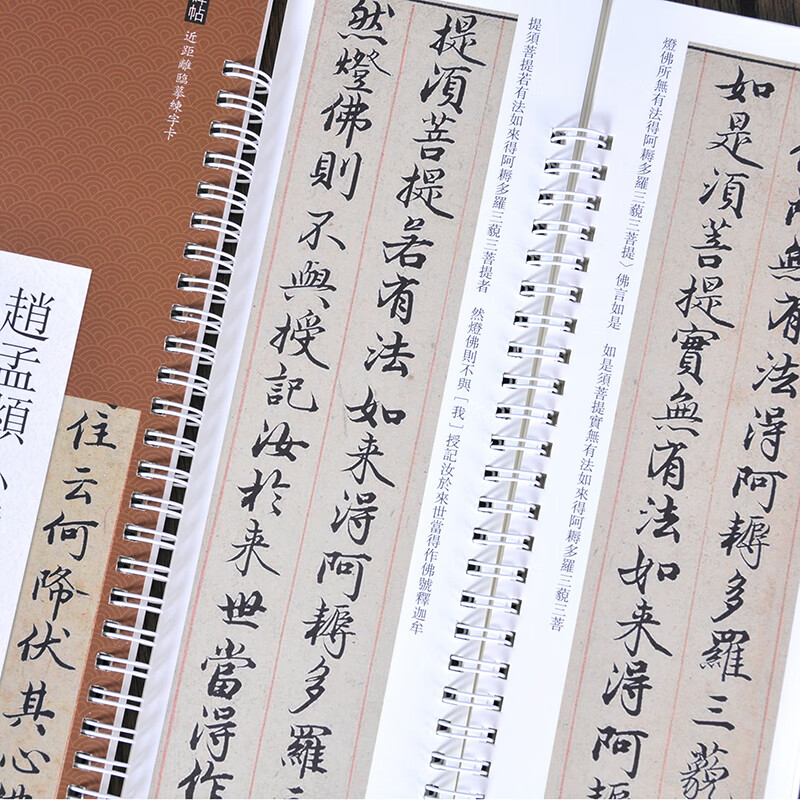 帖
近距離臨摹練字卡
趙孟頫
住云何降伏其心
提須菩提若有法如来得阿耨多羅
然燈佛則不與授記汝於来世當得作
提須菩提若有法如來得阿耨多羅三藐三菩提者
然燈佛則不與［我］授記汝於來世當得作佛號釋迦牟
所無有法得阿耨多羅三藐
如是須菩提實無有法如来得阿耨
燈佛所無有法得阿耨多羅三藐三菩提〉佛言如是
如是須菩提實無有法如來得阿耨多羅三藐三菩